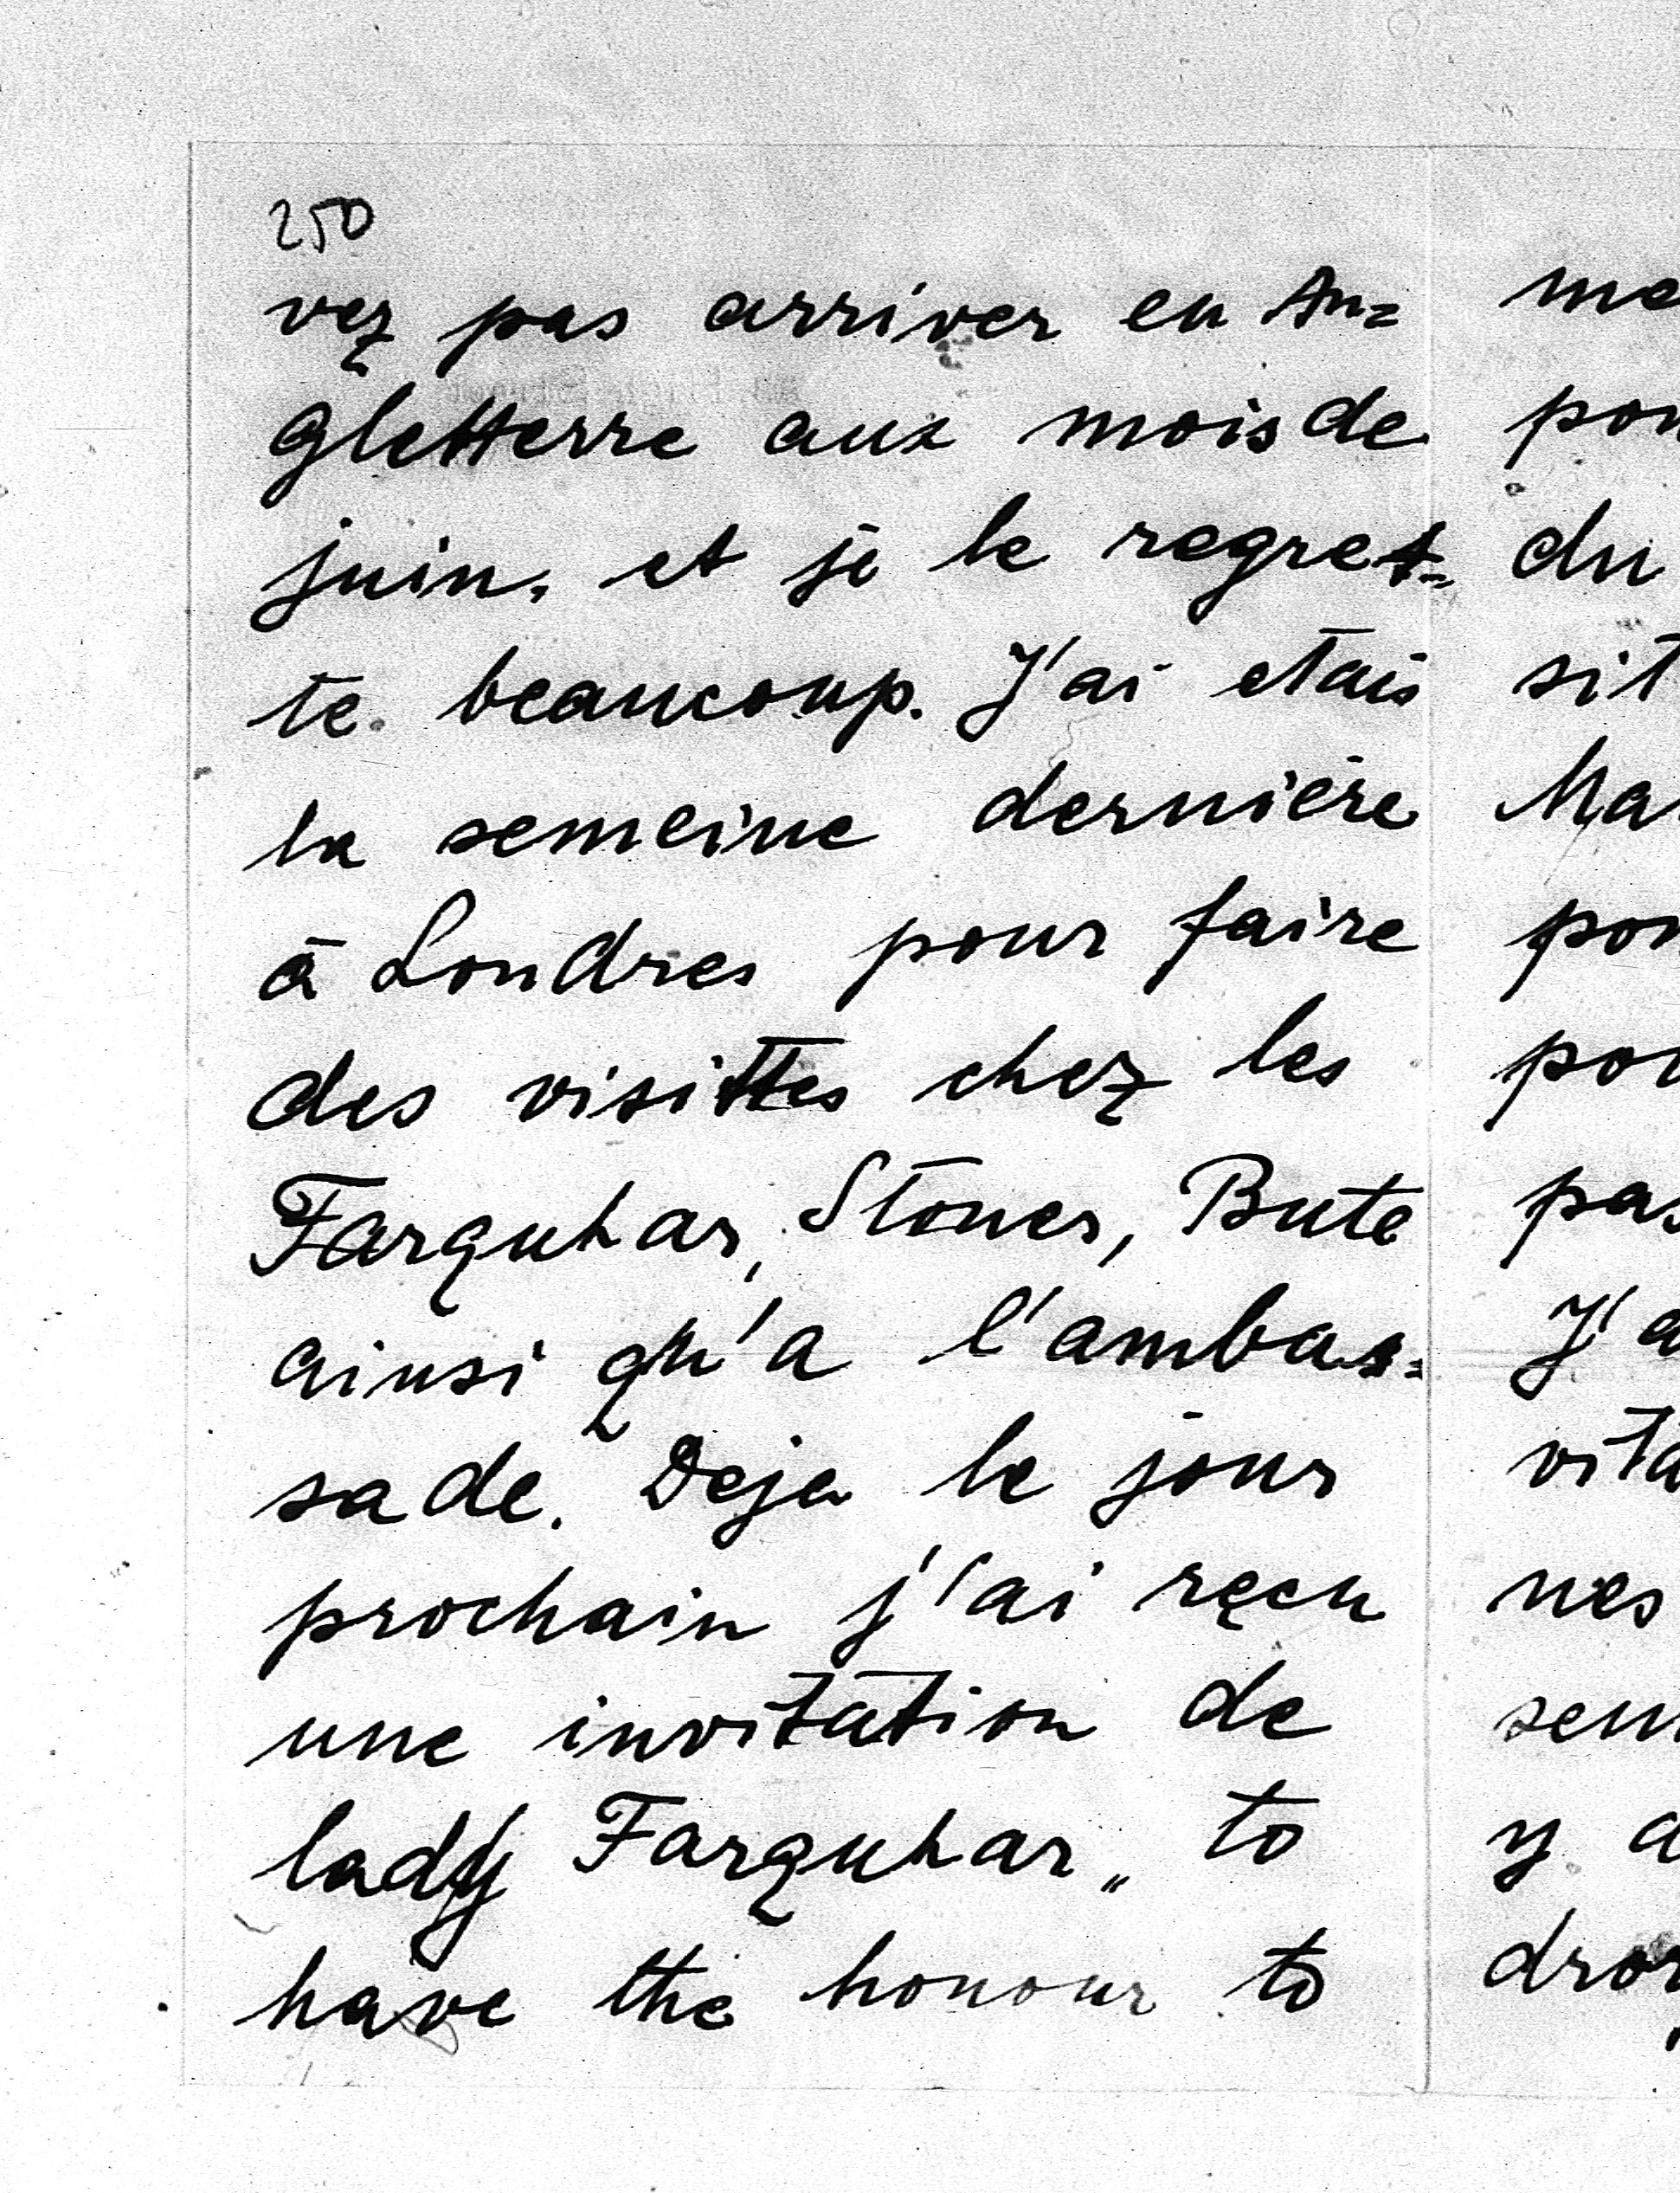 250
vez pas arriver en An=
gletterre aux mois de
juin, et je le regret=
te beaucoup. J'ai etais
la semeine dernière
à Londres pour faire
des visittes chez les
Farquhar, Stoner, Bute
ainsi qu'a l'ambas=
sade. Deja le jour
prochain j'ai reçu
une invitation de
lady Farquhar „ to
have the honour to
me
du
sit
pas
J'a
nes
y a